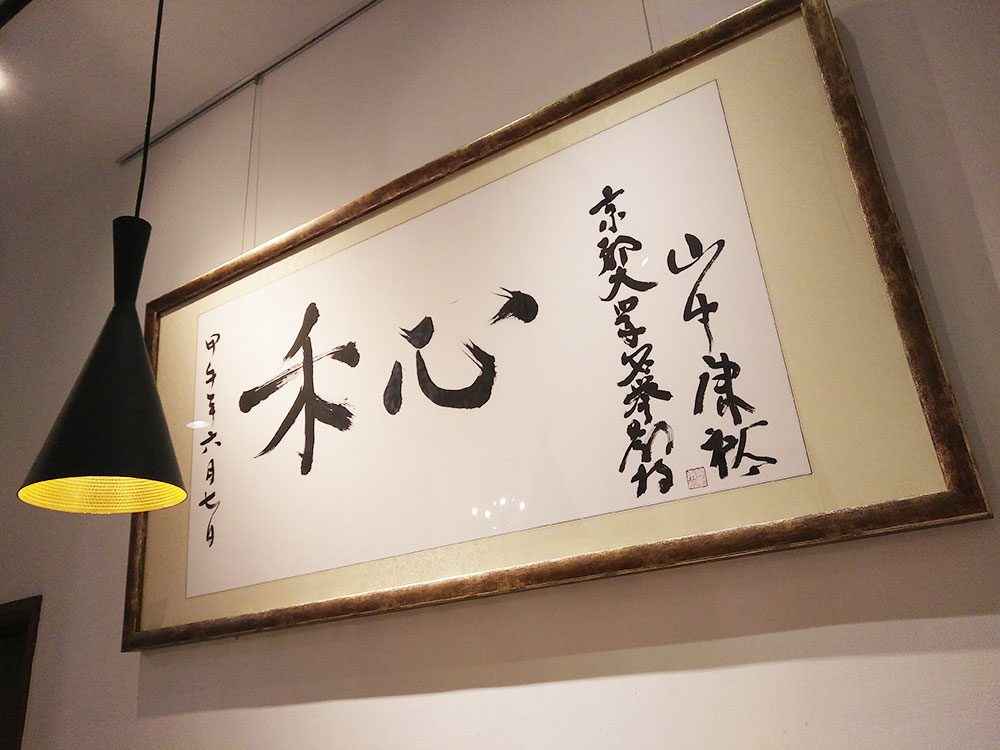 甲午年六月七日
禾心
京都大学名誉教授
山中康裕